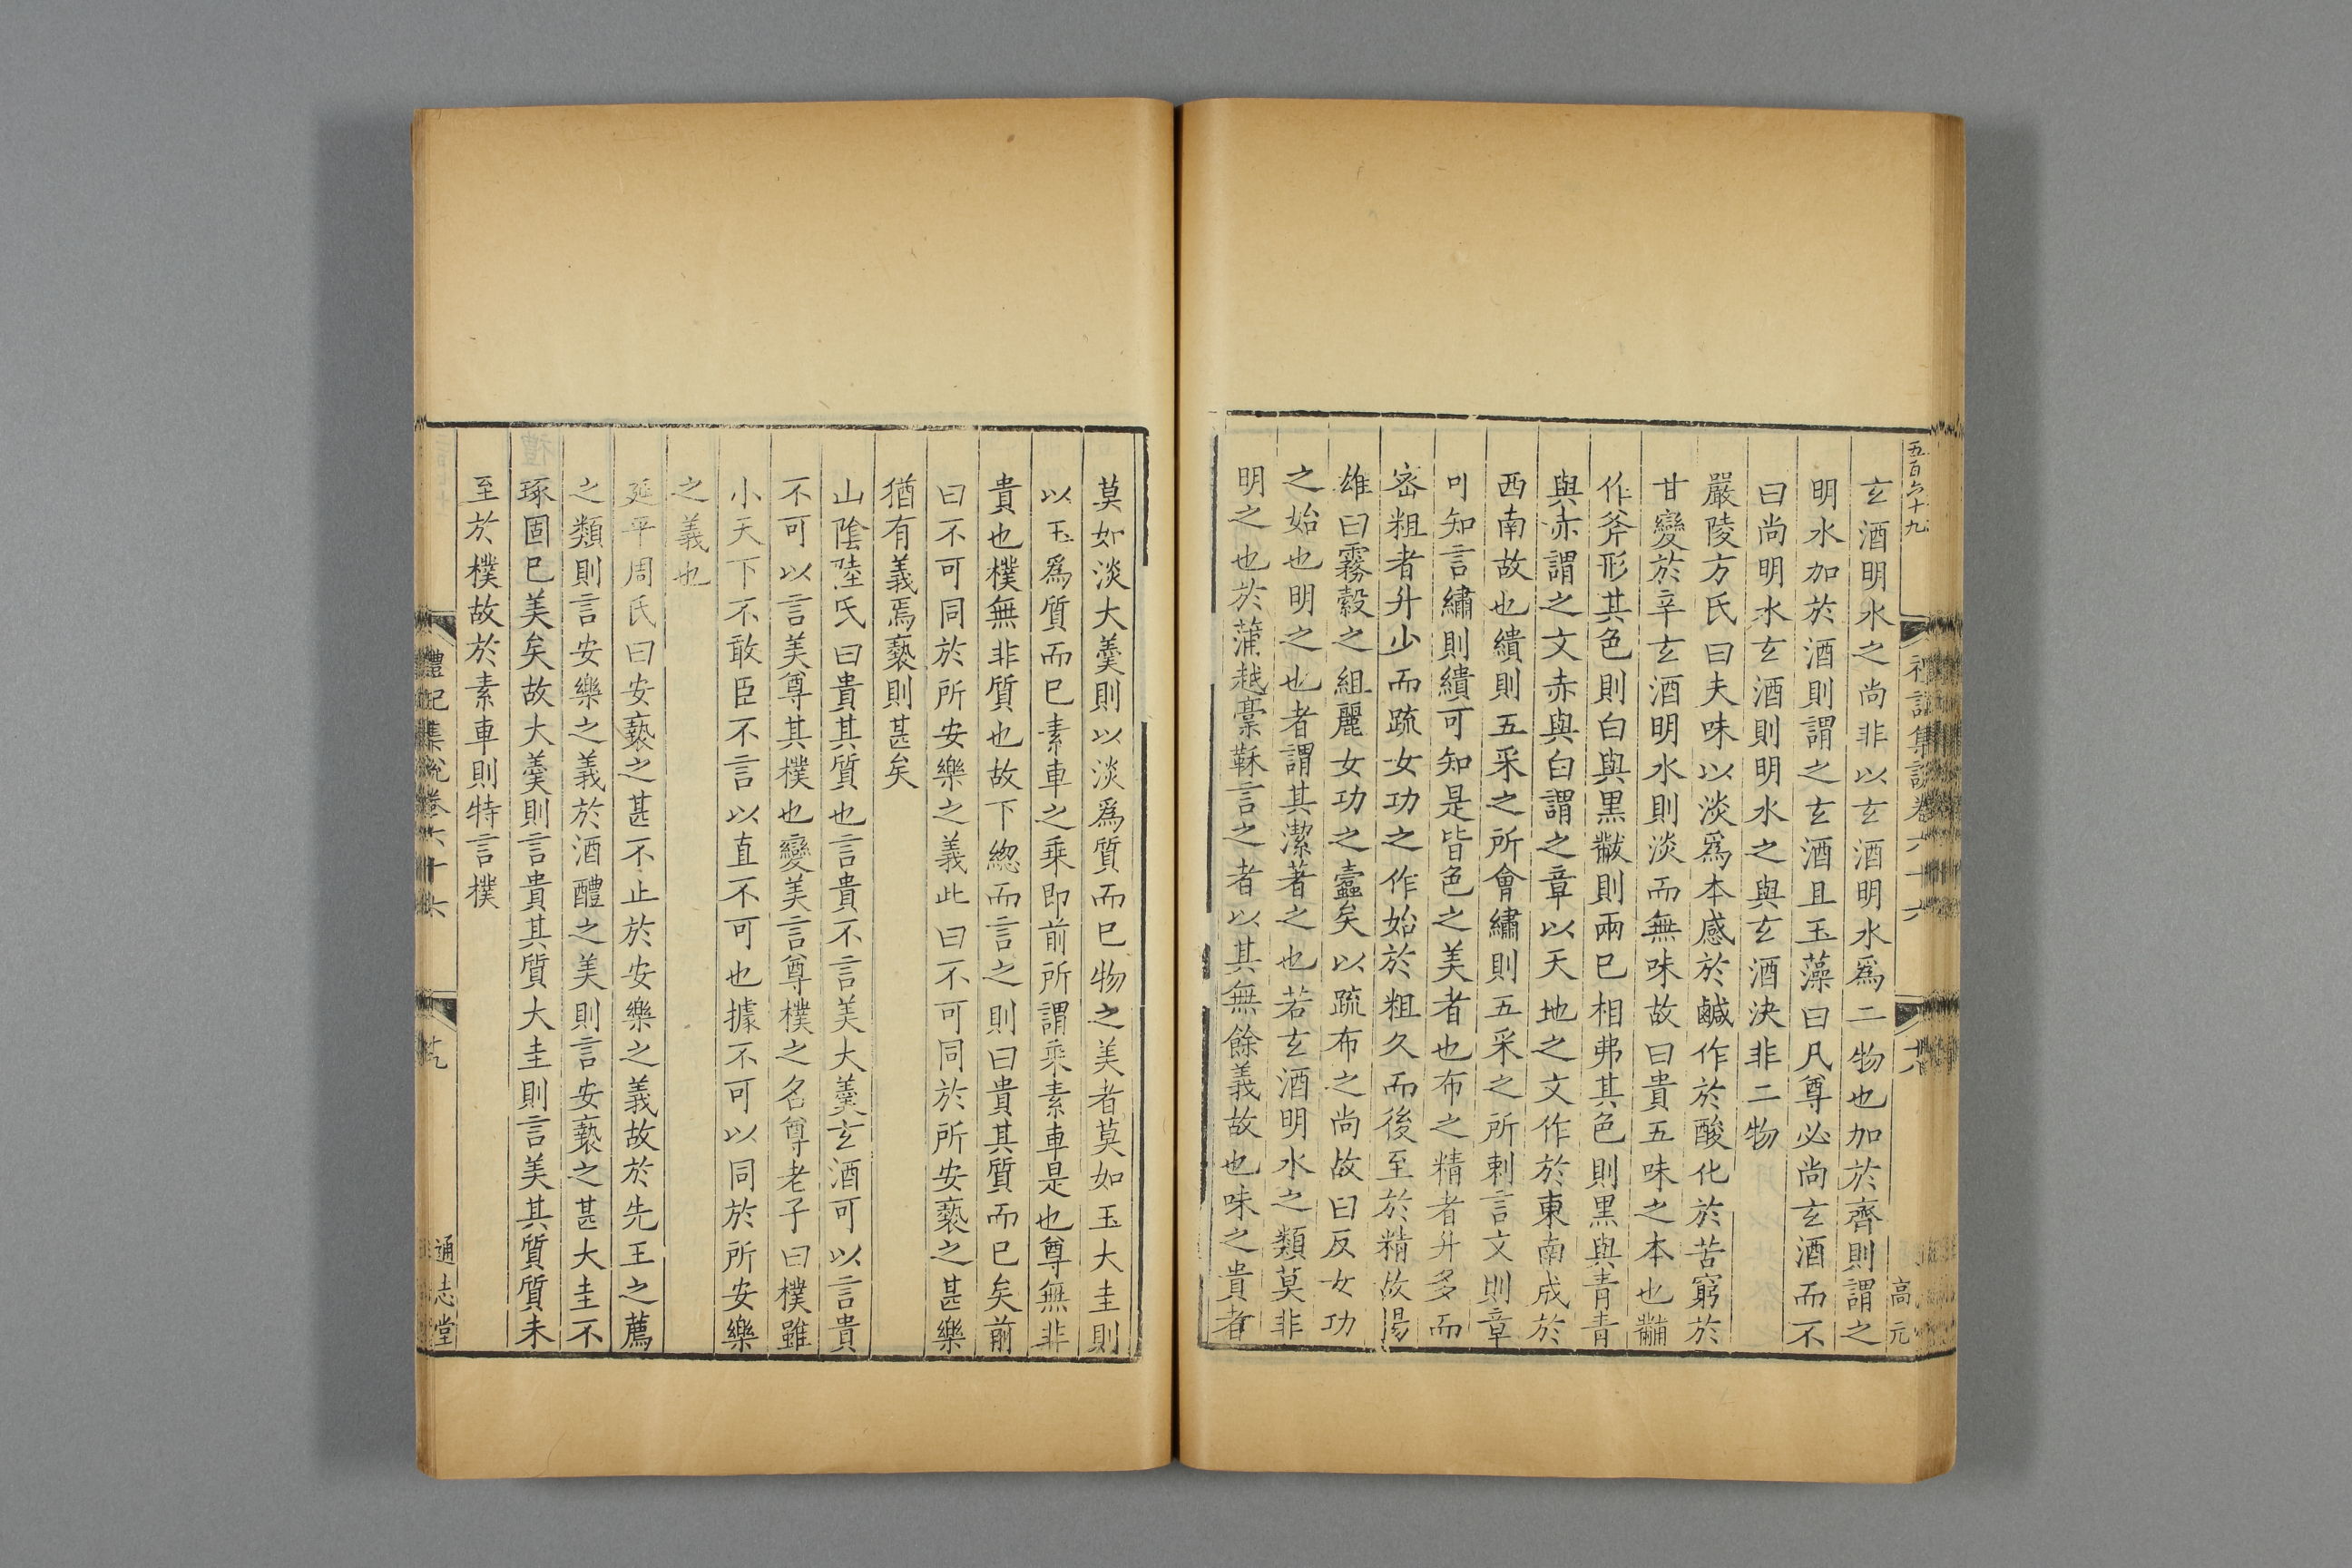 五百六十九
禮記集說卷六十六
高元
玄酒明水之尚非以玄酒明水爲二物也加於齊則謂之
明水加於酒則謂之玄酒且玉藻曰凡尊必尚玄酒而不
曰尚明水玄酒則明水之與玄酒決非二物
嚴陵方氏曰夫味以淡爲本感於鹹作於酸化於苦窮於
甘變於辛玄酒明水則淡而無味故曰貴五味之本也黼
作斧形其色則白與黑黻則兩巳相弗其色則黑與青青
與赤謂之文赤與白謂之章以天地之文作於東南成於
西南故也繢則五采之所會繡則五采之所刺言文則章
可知言繡則繢可知是皆色之美者也布之精者升多而
宻粗者升少而疏女功之作始於粗久而後至於精故揚
雄曰霧縠之組麗女功之蠹矣以疏布之尚故曰反女功
之始也明之也者謂其潔著之也若玄酒明水之類莫非
明之也於蒲越稾鞂言之者以其無餘義故也味之貴者
莫如淡大羹則以淡爲質而已物之美者莫如玉大圭則
以玉爲質而已素車之乘即前所謂乘素車是也尊無非
貴也樸無非質也故下緫而言之則曰貴其質而已矣前
曰不可同於所安樂之義此曰不可同於所安褻之甚樂
猶有義焉褻則甚矣
山隂陸氏曰貴其質也言貴不言美大羹玄酒可以言貴
不可以言美尊其樸也變美言尊樸之名尊老子曰樸雖
小天下不敢臣不言以直不可也據不可以同於所安樂
之義也
延平周氏曰安褻之甚不止於安樂之義故於先王之薦
之類則言安樂之義於酒醴之美則言安褻之甚大圭不
琢固巳美矣故大羹則言貴其質大圭則言美其質質未
至於樸故於素車則特言樸
禮記集說卷六十六
通志堂